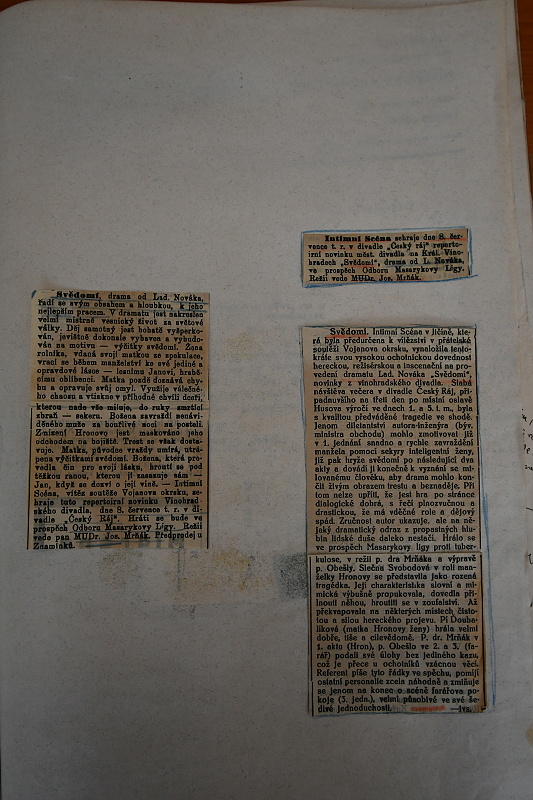 Svědomí, drama od Lad. Nováka,
řadí se svým obsahem a hloubkou, k jeho
nejlepším pracem. V dramatu jest nakreslen
velmi mistrně vesnický život za světové
války. Děj samotný jest bohatě vyšperko-
ván, jevištně dokonale vybaven a vybudo-
ván na motivu — výčitky svědomí. Žena
rolníka, vdaná svojí matkou ze spekulace,
vrací se během manželství ke své jediné a
opravdové lásce — lesnímu Janovi, hraběc-
címu oblíbenci. Matka pozdě doznává chy-
bu a opravuje svůj omyl. Využije válečné-
ho chaosu a vtiskne v příhodné chvíli dceři,
kterou nade vše miluje, do ruky smrtící
zbraň — sekeru. Božena zavraždí nenávi-
děného muže za bouřlivé noci na posteli.
Zmizení Hronovo jest maskováno jeho
odchodem na bojiště. Trest se však dosta-
vuje. Matka, původce vraždy umírá, utrá-
pena výčitkami svědomí. Božena, která pro-
vedla čin pro svoji lásku, hroutí se pod
těžkou ranou, kterou jí zasazuje sám —
Jan, když se dozví o její vině. — Intimní
Scéna, vítěz soutěže Vojanova okrsku, se-
hraje tuto repertoirní novinku Vinohrad-
ského divadla, dne 8. července t. r. v di-
vadle „Český Ráj“. Hráti se bude ve
prospěch Odboru Masarykovy Ligy. Režii
vede pan MUDr. Jos. Mrňák. Předprodej u
Znamínků.
Intimní Scéna sehraje dne 8. čer-
vence t. r. v divadle „Český ráj“ reperto-
irní novinku měst. divadla na Král. Vino-
hradech „Svědomí“, drama od L. Nováka,
ve prospěch Odboru Masarykovy Ligy.
Režii vede MUDr. Jos. Mrňák.
Svědomí. Intimní Scéna v Jičíně, kte-
rá byla předurčena k vítězství v přátelské
soutěži Vojanova okrsku, vynaložila tento-
kráte svou vysokou ochotnickou dovednost
hereckou, režisérskou a inscenační na pro-
vedení dramatu Lad. Nováka „Svědomí“,
novinky z vinohradského divadla. Slabá
návštěva večera v divadle Český Ráj, při-
padnuvšího na třetí den po místní oslavě
Husova výročí ve dnech 1. a 5. t. m., byla
s kvalitou předváděné tragedie ve shodě.
Jenom diletantství autora-inženýra (býv.
ministra obchodu) mohlo zmotivovati již
v 1. jednání snadno a rychle zavraždění
manžela pomocí sekyry inteligentní ženy,
již pak hryže svědomí po následující dva
akty a dovádí ji konečně k vyznání se mi-
lovanému člověku, aby drama mohlo kon-
čit živým obrazem trestu a beznaděje. Při
tom nelze upříti, že jest hra po stránce
dialogické dobrá, s řečí plnozvučnou a
drastickou, že má vděčné role a dějový
spád. Zručnost autor ukazuje, ale na ně-
jaký dramatický odraz z propastných hlu-
bin lidské duše daleko nestačí. Hrálo se
ve prospěch Masarykovy ligy proti tuber-
kulose, v režii p. dra Mrňáka a výpravě
p. Obešly. Slečna Svobodová v roli man-
želky Hronovy se představila jako rozená
tragédka. Její charakteristika slovní a mi-
mická výbušně propukovala, dovedla při-
lnouti něhou, hroutiti se v zoufalství. Až
překvapovala na některých místech čisto-
tou a silou hereckého projevu. Pí Douba-
líková (matka Hronovy ženy) hrála velmi
dobře, tiše a cílevědomě. P. dr. Mrňák v
1. aktu (Hron), p. Obešlo ve 2. a 3. (fa-
rář) podali své úlohy bez jediného kazu,
což je přece u ochotníků vzácnou věcí.
Referent píše tyto řádky ve spěchu, pomíjí
ostatní personalie zcela náhodně a zmiňuje
se jenom na konec o scéně farářova po-
koje (3. jedn.), velmi působivé ve své še-
divé jednoduchosti. —ivs.